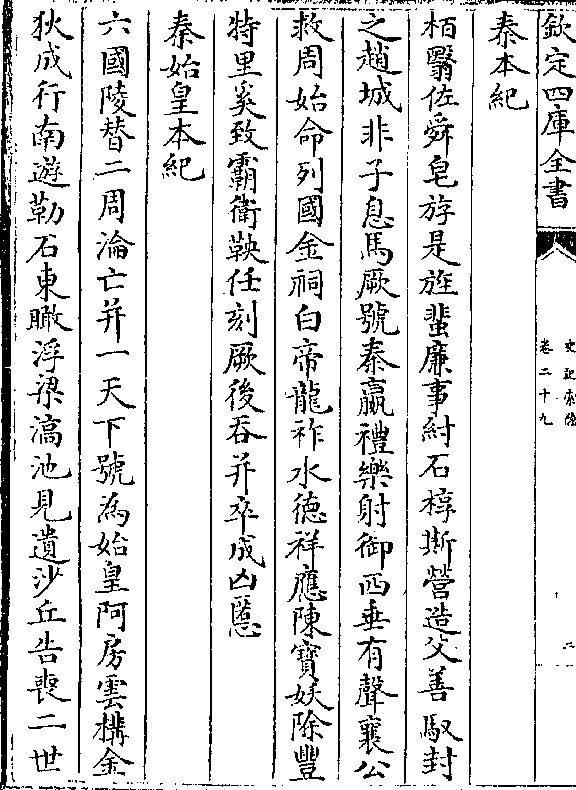 欽定四庫全書
史記索隱
卷二十九
二
秦本紀
栢翳佐舜皂斿是旌蜚廉事紂石椁斯營造父善馭封
之趙城非子息馬厥號秦嬴禮樂射御西垂有聲襄公
救周始命列國金祠白帝龍祚水德祥應陳寶妖除豐
特里奚致霸衛鞅任刻厥後吞并卒成凶慝
秦始皇本紀
六國陵替二周淪亡并一天下號為始皇阿房雲構金
狄成行南遊勒石東瞰浮梁滈池見遺沙丘告喪二世